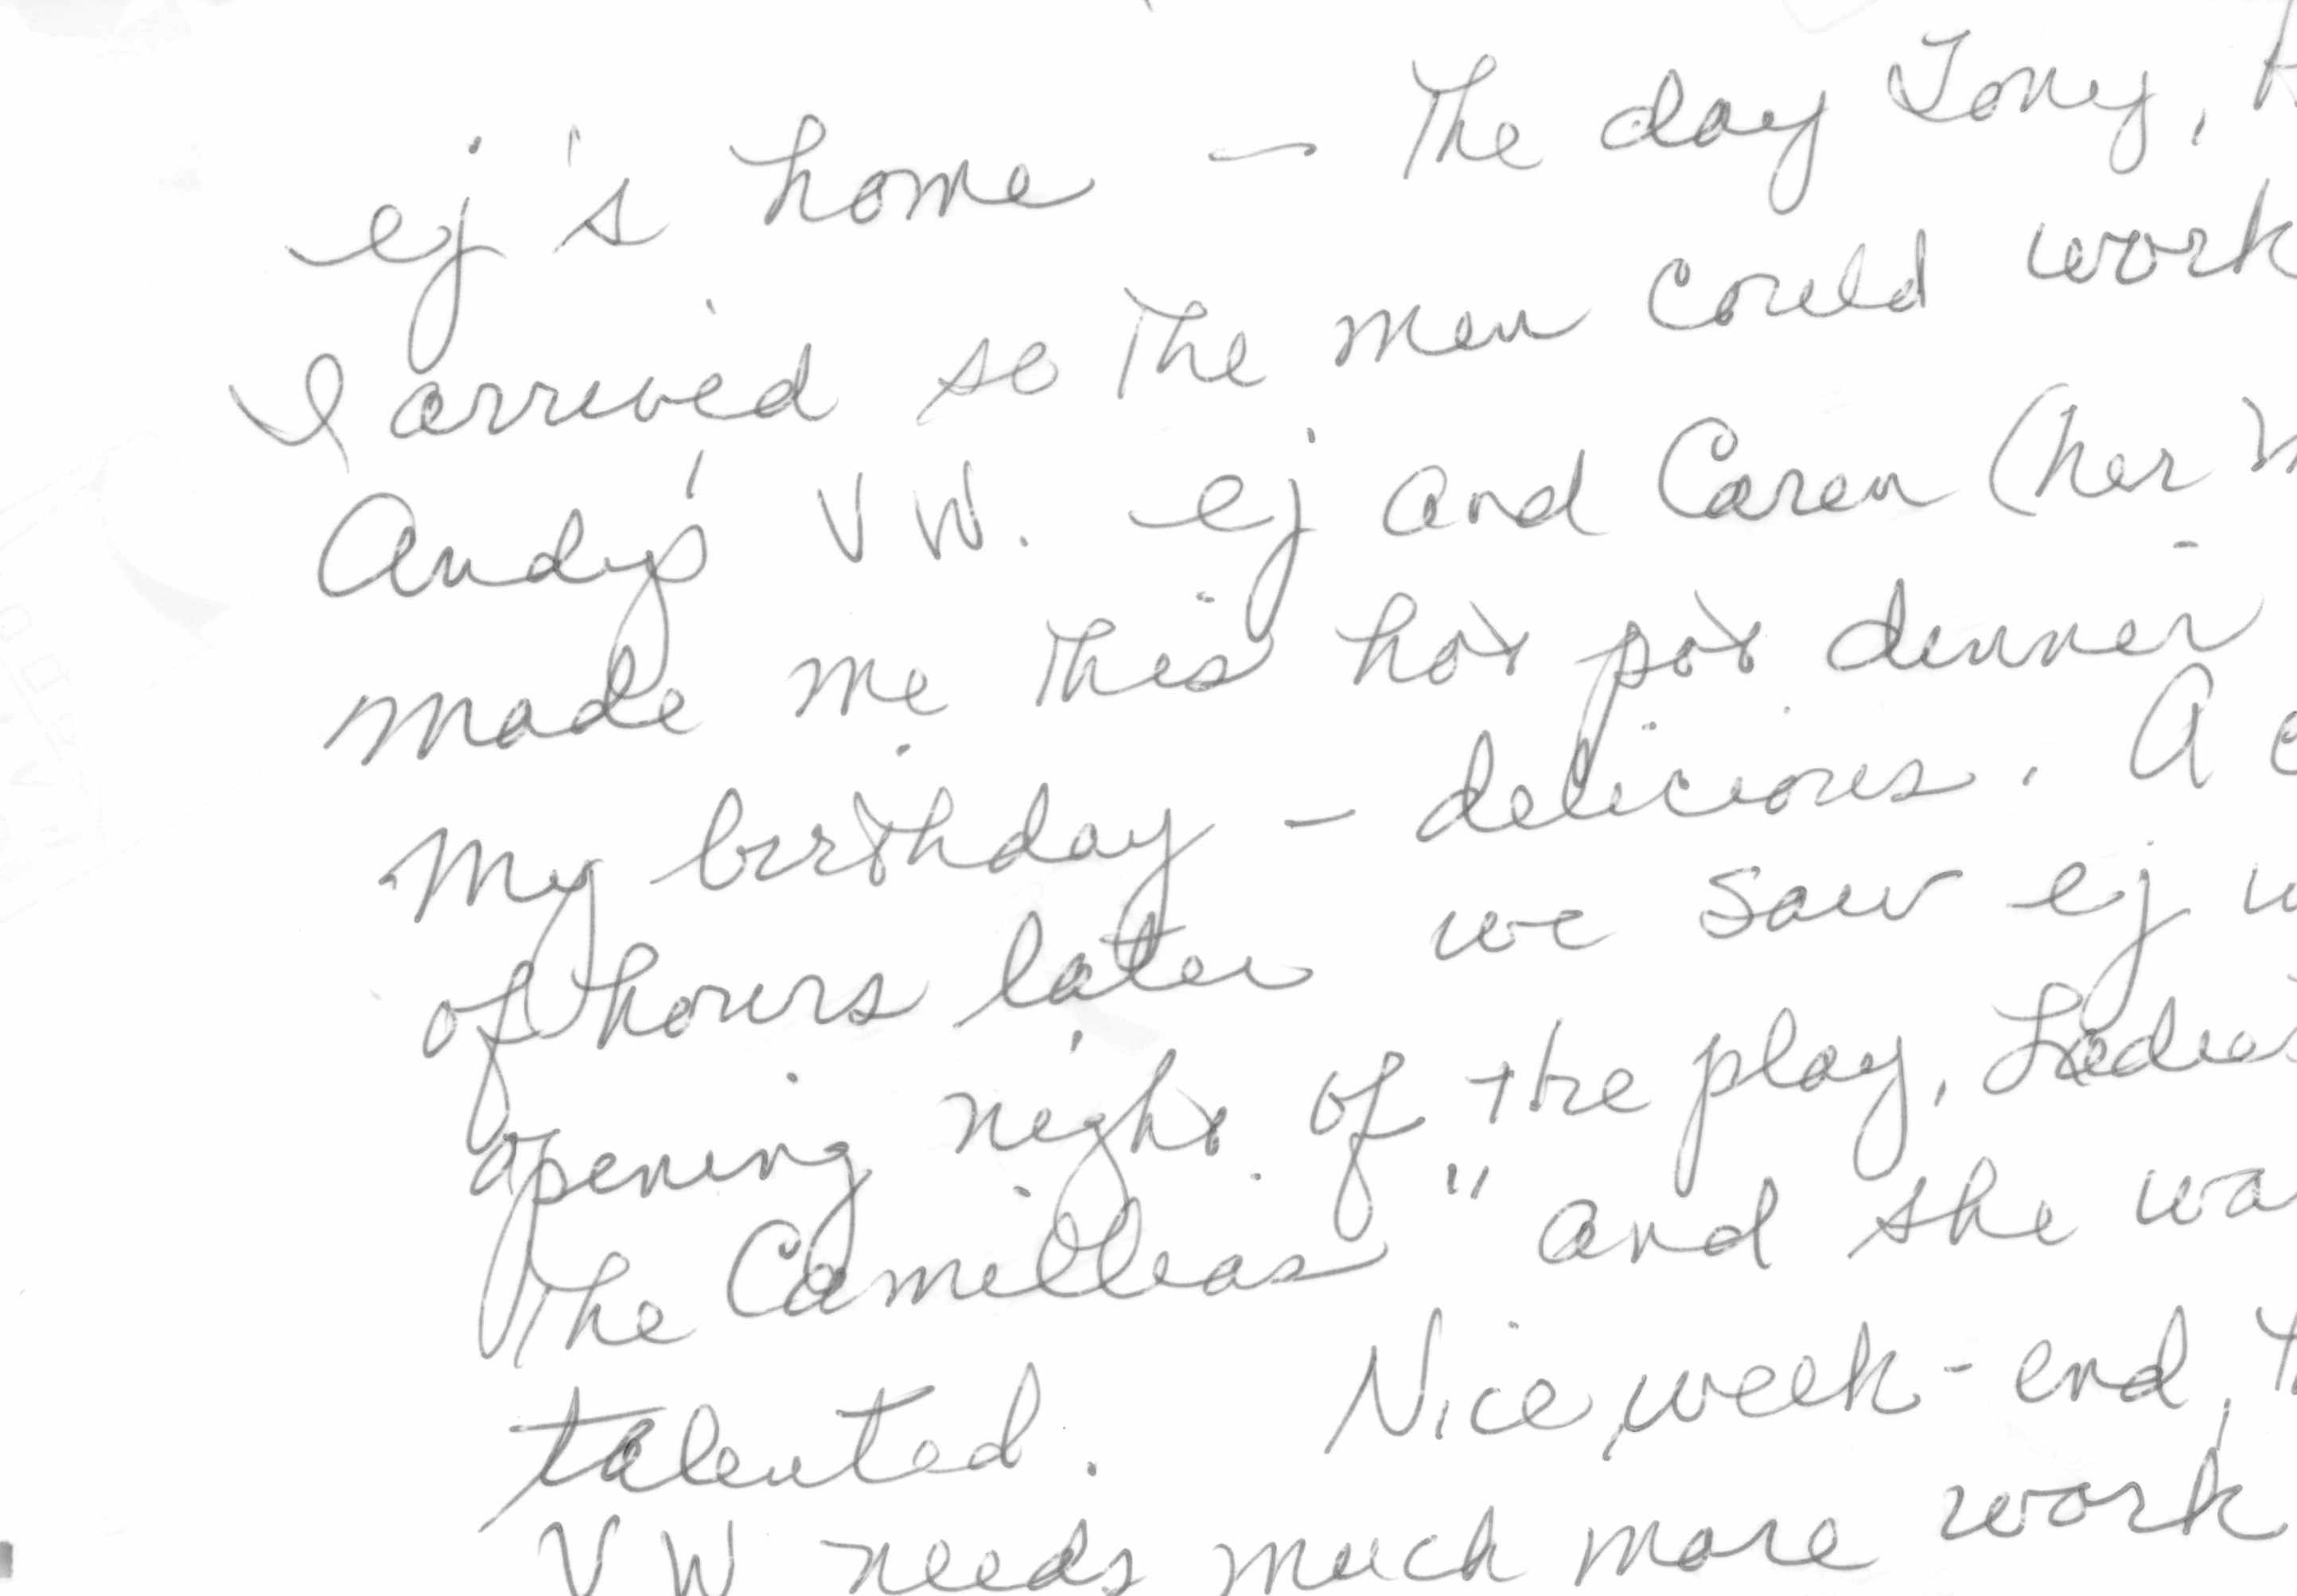 ej's home – The day Tony,
I arrived so The men could work
Andy's VW. ej and Caren (her
made me this hot pot dinner
My birthday – delicious. A
of hours later we saw ej
opening night of the play, Ladies
The Camellias" and she wa
talented. Nice week-end,
VW needs much more work